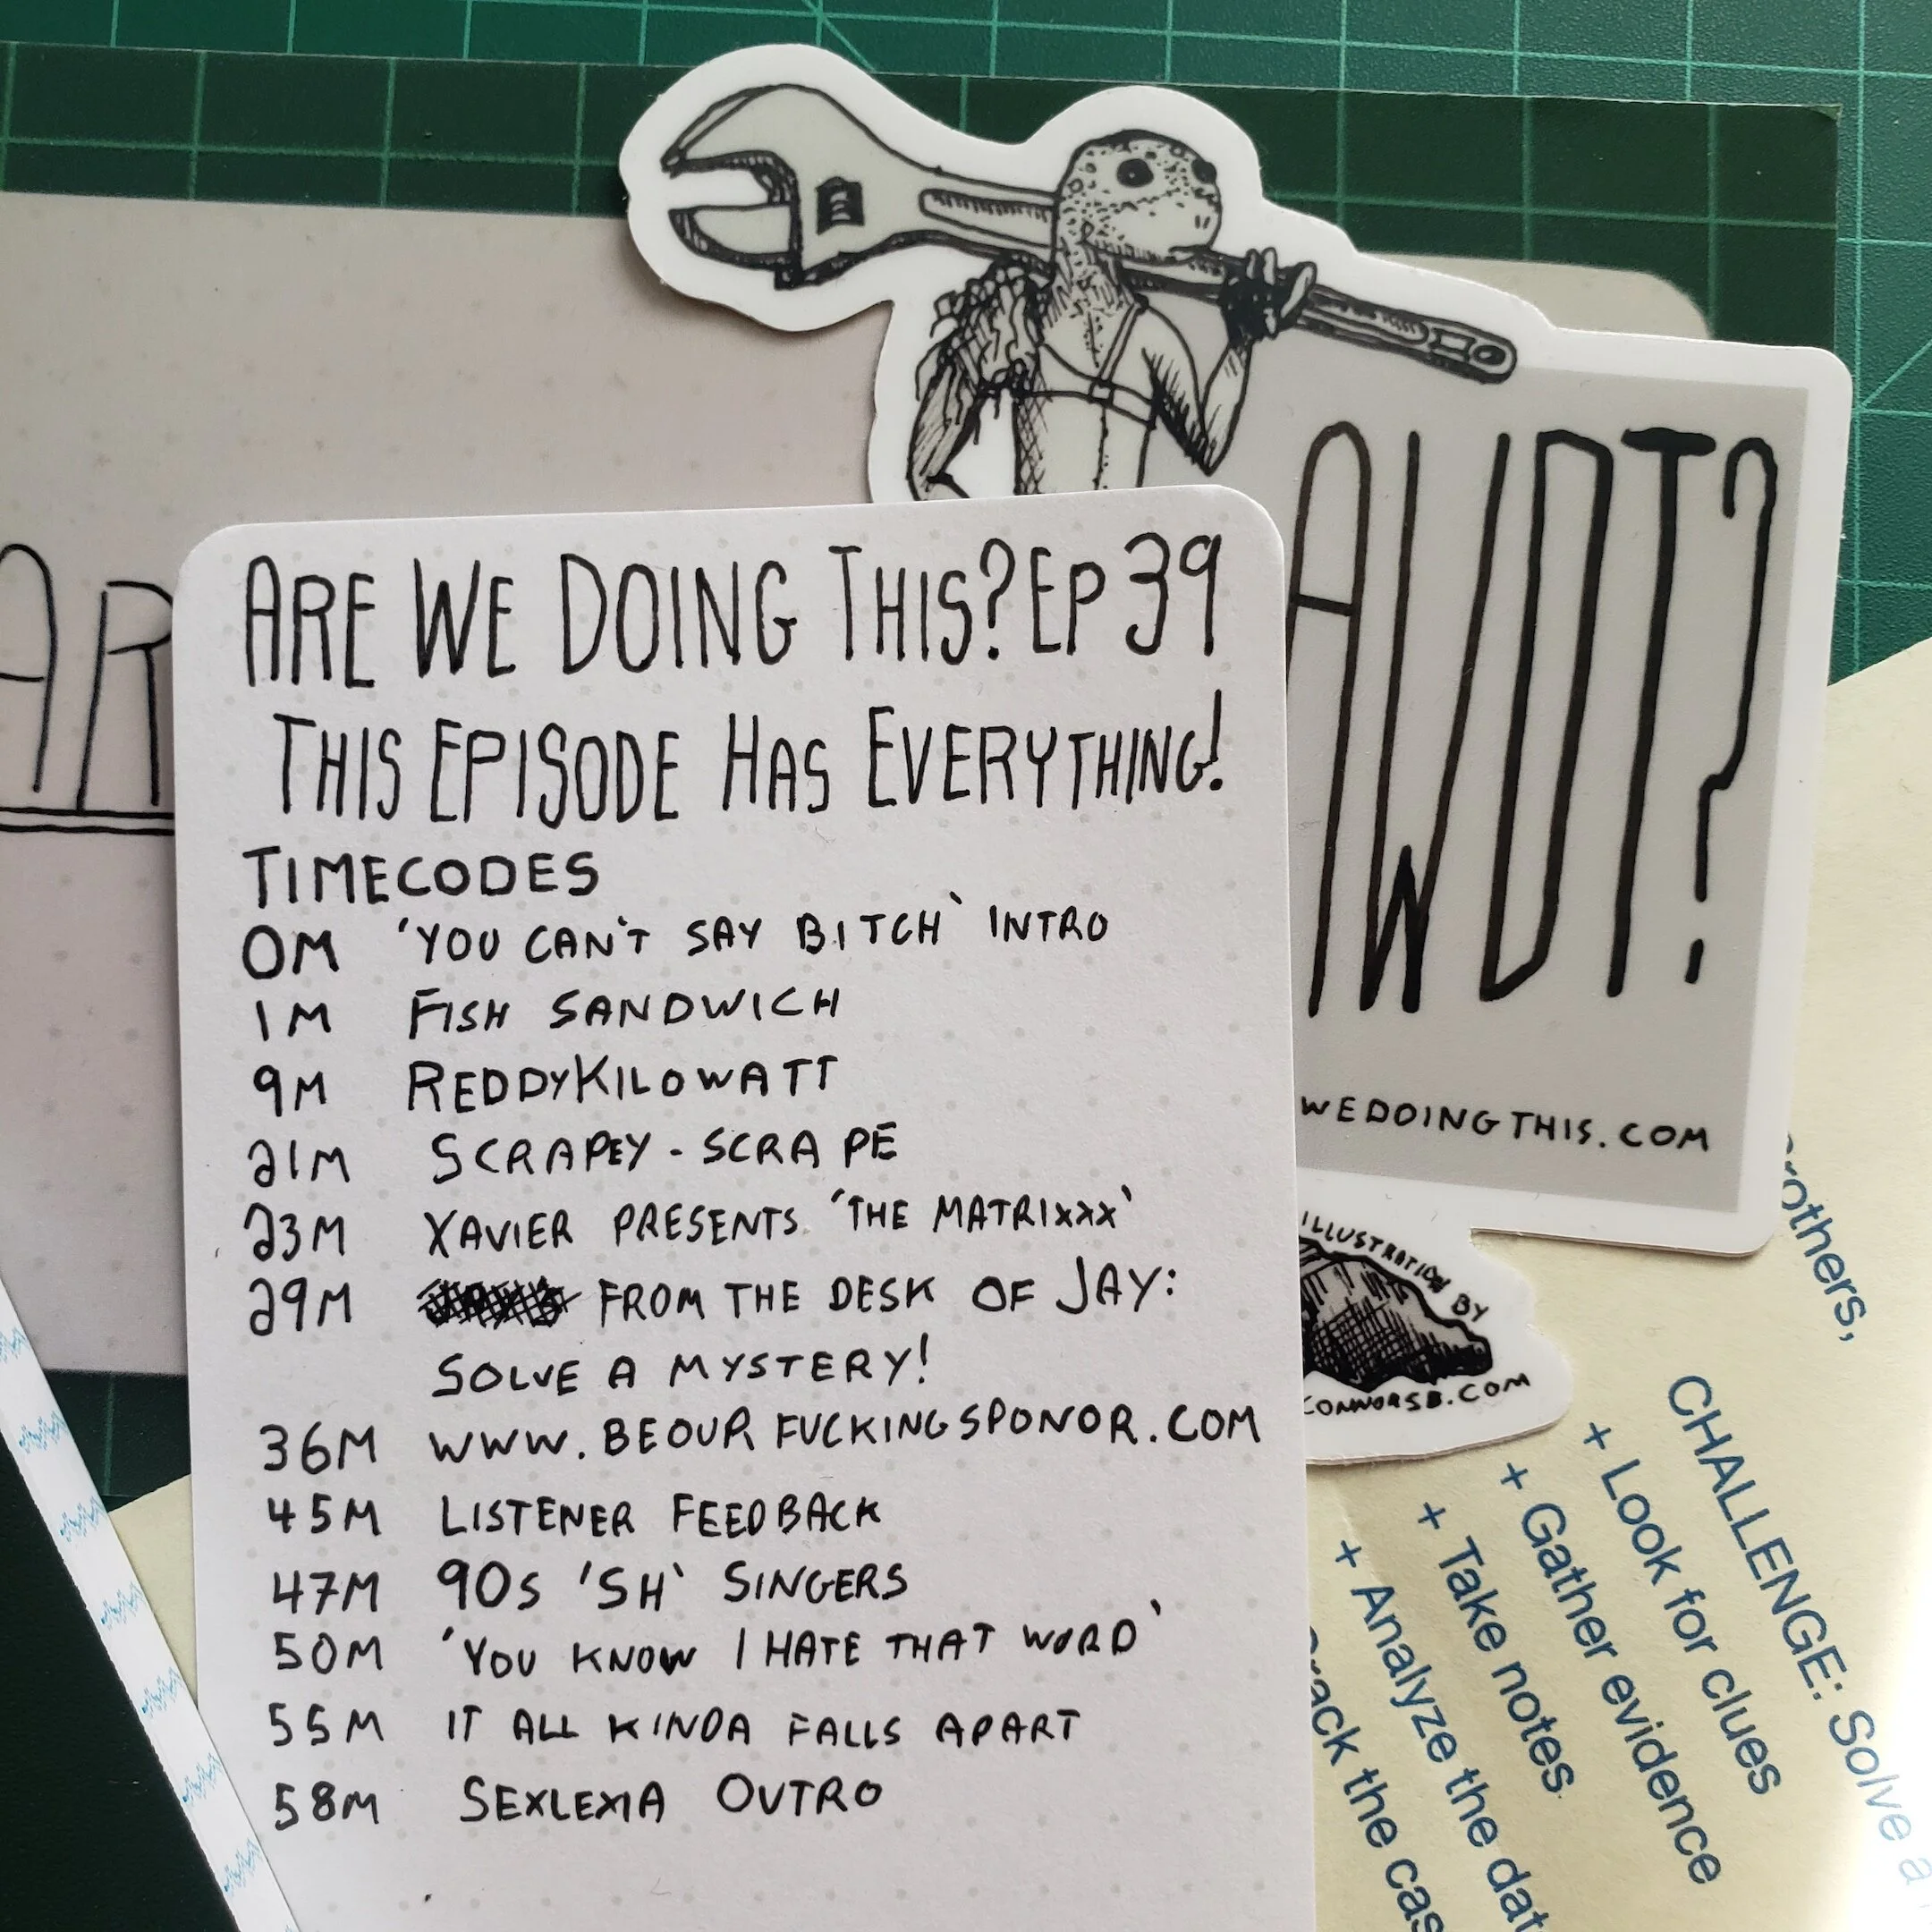 ARE WE DOING THIS? EP 39
THIS EPISODE HAS EVERYTHING!
TIMECODES
0M 'YOU CAN'T SAY BITCH' INTRO
1M FISH SANDWICH
9M REDDYKILOWATT
21M SCRAPEY-SCRAPE
23M XAVIER PRESENTS 'THE MATRIXXX'
29M FROM THE DESK OF JAY:
SOLVE A MYSTERY!
36M WWW.BEOURFUCKINGSPONOR.COM
45M LISTENER FEEDBACK
47M 90S 'SH' SINGERS
50M 'YOU KNOW I HATE THAT WORD'
55M IT ALL KINDA FALLS APART
58M SEXLEXIA OUTRO
AR
AWDT?
WEDOINGTHIS.COM
ILLUSTRATION BY
CONNORSB.COM
rothers,
CHALLENGE: Solve a
+ Look for clues
+ Gather evidence
+ Take notes
+ Analyze the dat
rack the cas